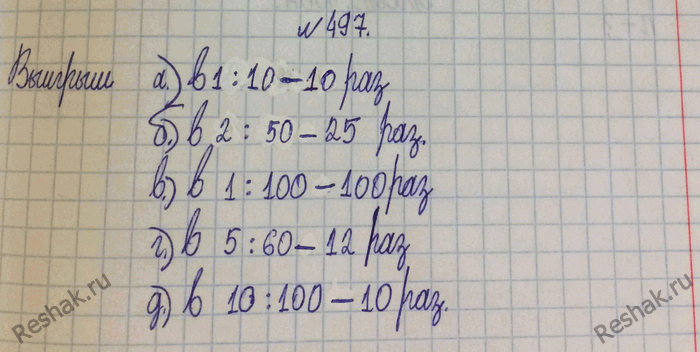 № 497.
Выигрыш а.) в 1 : 10 – 10 раз
б.) в 2 : 50 – 25 раз.
в.) в 1 : 100 – 100 раз
г.) в 5 : 60 – 12 раз
д.) в 10 : 100 – 10 раз.
Reshak.ru
Reshak.ru